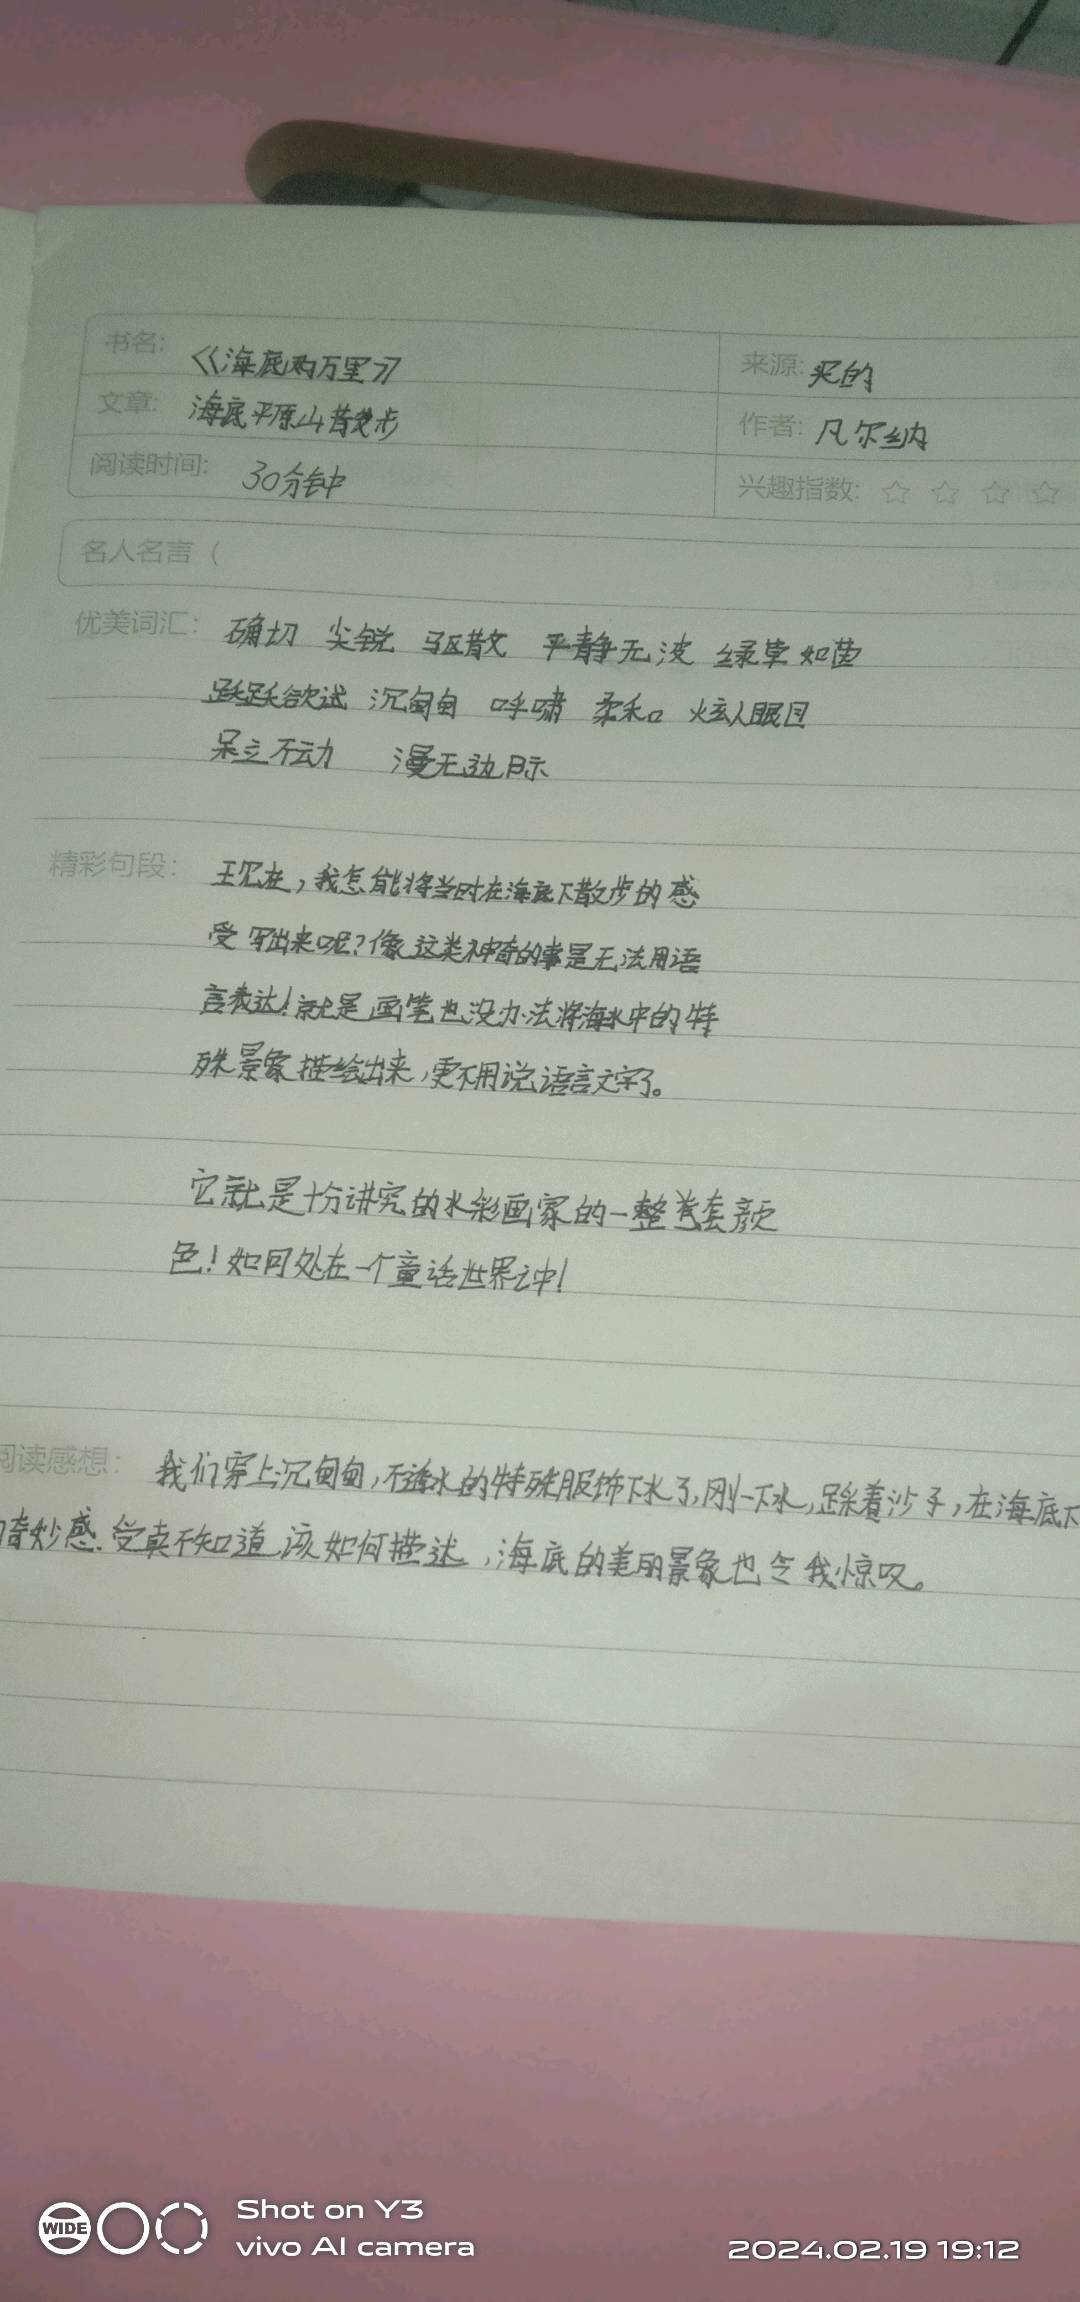 书名: 《海底两万里》 来源: 买的
文章: 海底平原山散步 作者: 凡尔纳
阅读时间: 30分钟 兴趣指数: ☆ ☆ ☆ ☆
名人名言 (
优美词汇: 确切 尖锐 驱散 平静无波 绿草如茵
跃跃欲试 沉甸甸 呼啸 柔和 炫人眼目
呆立不动 漫无边际
精彩句段: 现在,我怎能将当时在海底下散步的感
受写出来呢?像这类神奇的事是无法用语
言表达!就是画笔也没办法将海水中的特
殊景象描绘出来,更不用说语言文字了。
它就是十分讲究的水彩画家的一整套颜
色!如同处在一个童话世界之中!
阅读感想: 我们穿上沉甸甸,不透水的特殊服饰下水了,刚一下水,踩着沙子,在海底下
奇妙感受真不知道该如何描述,海底的美丽景象也令我惊叹。
WIDE
Shot on Y3
vivo AI camera
2024.02.19 19:12